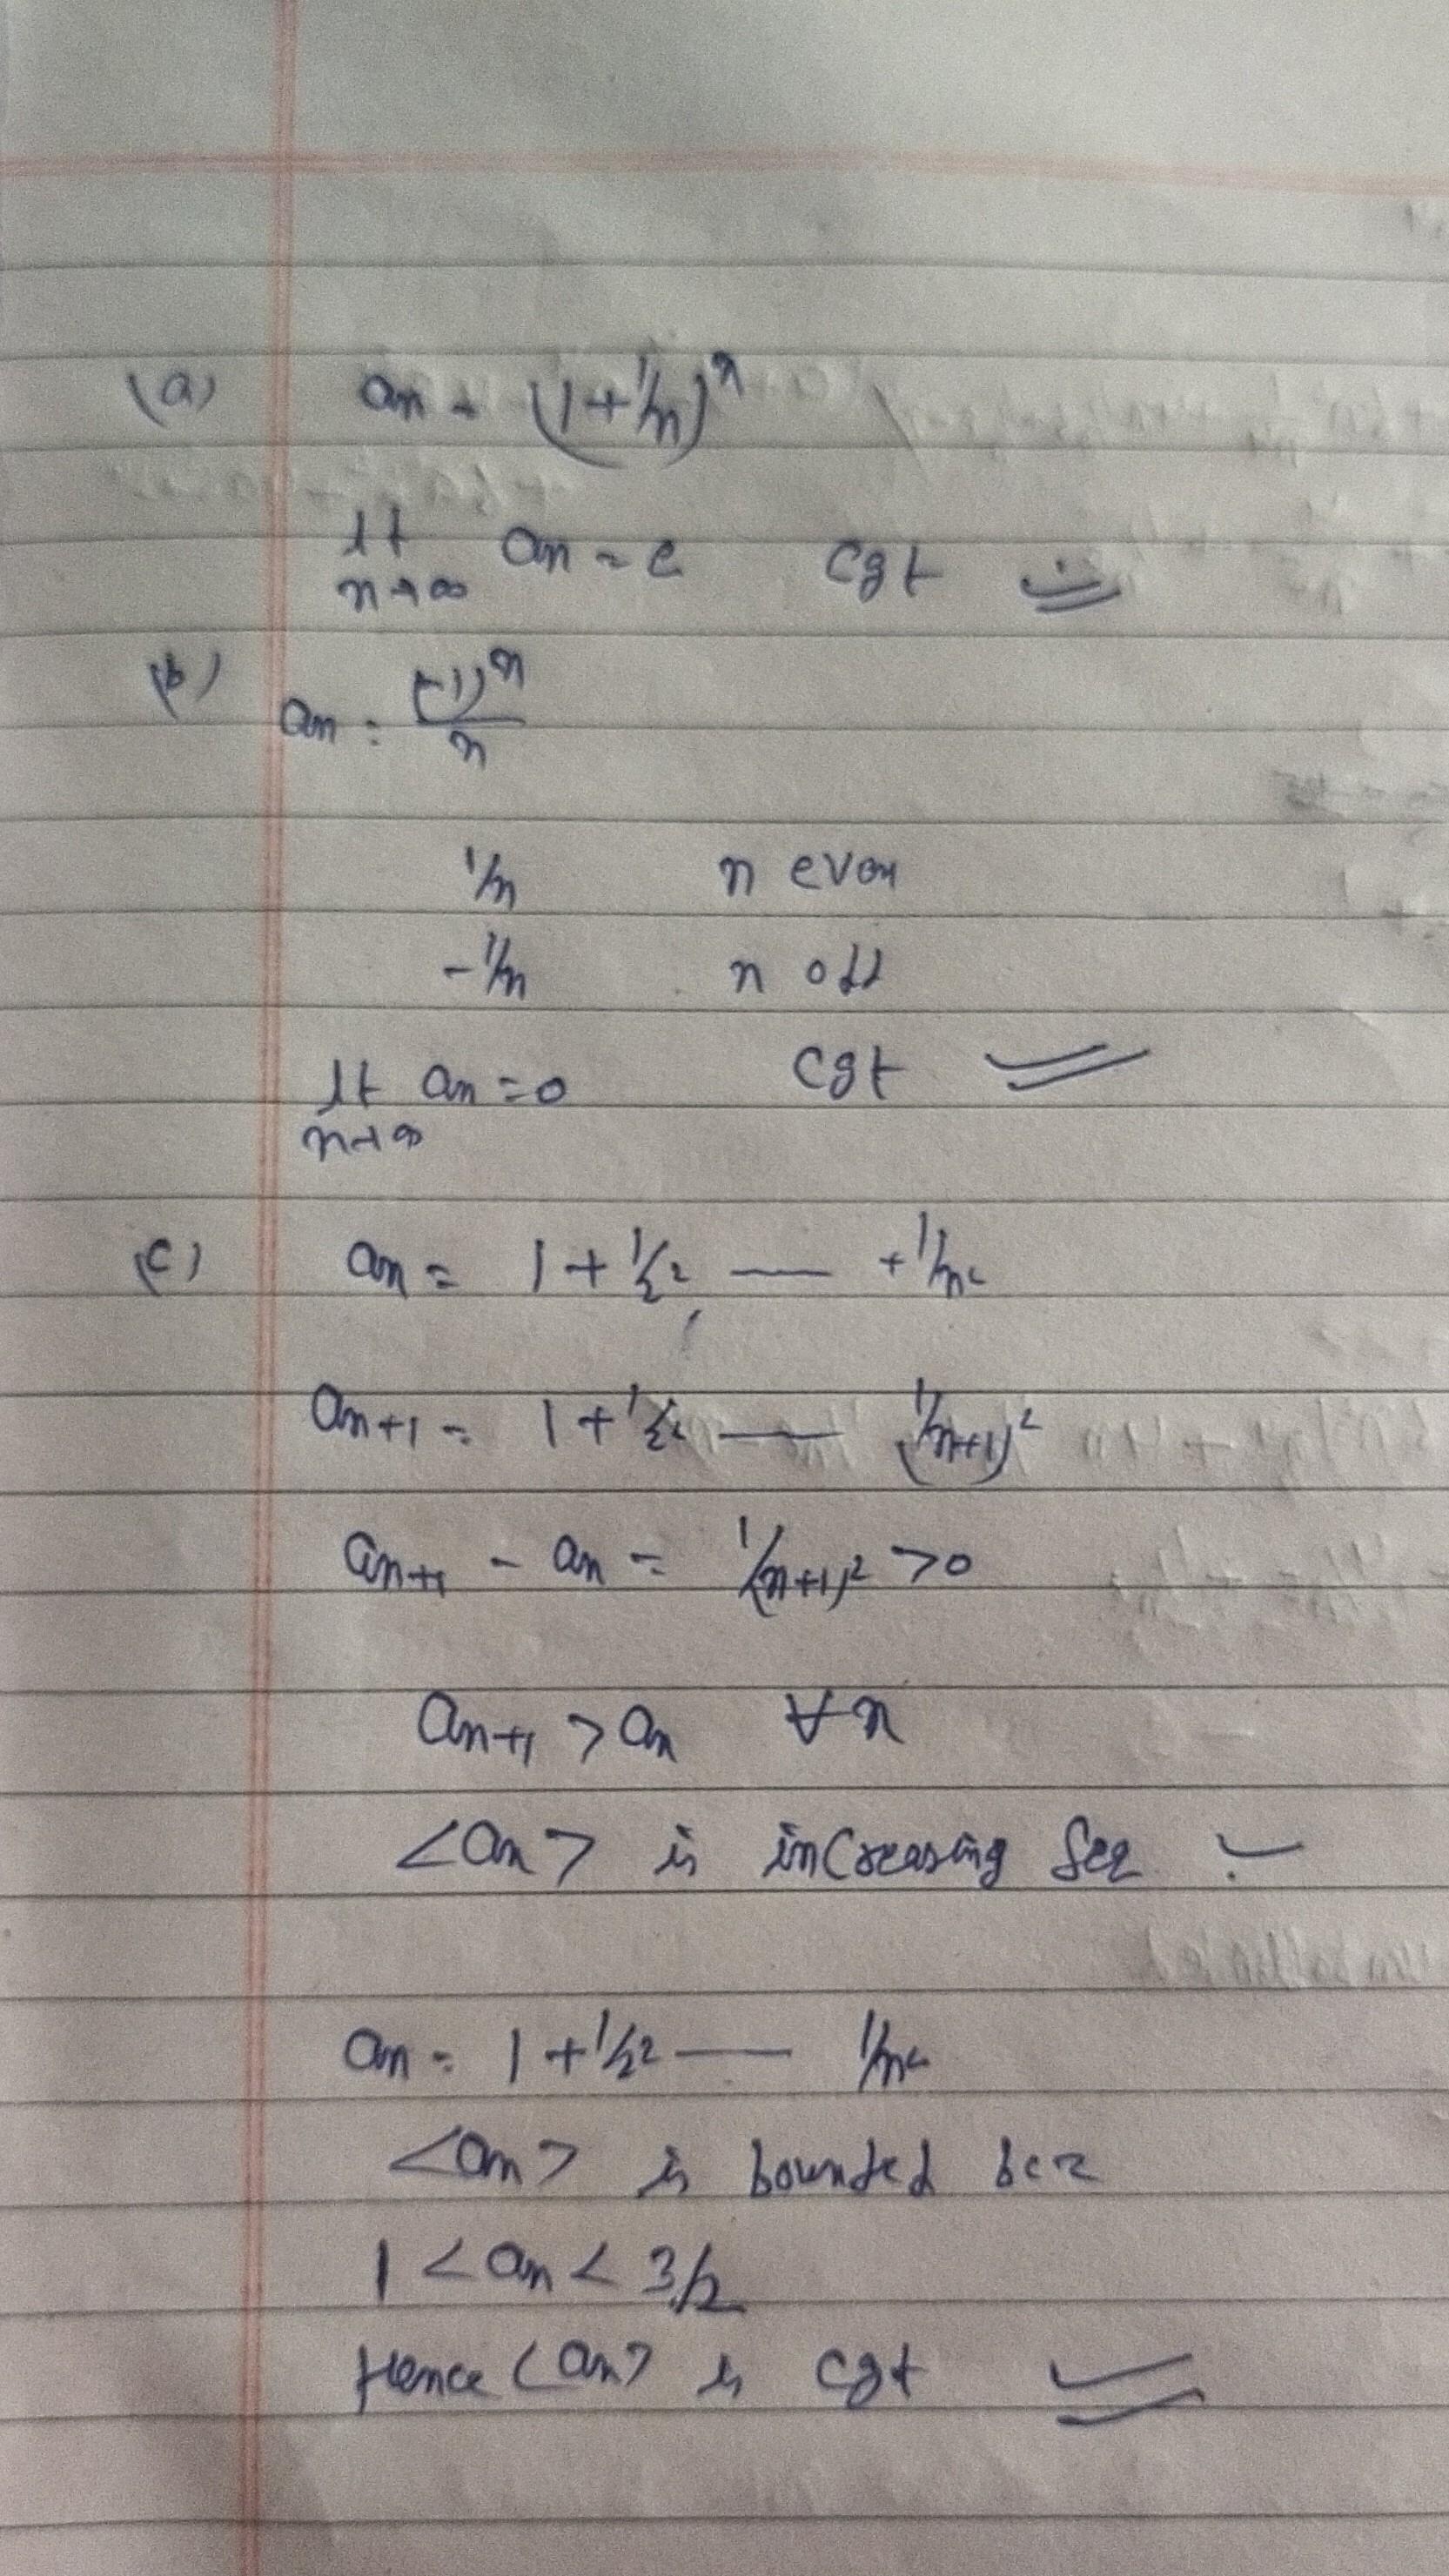 (a) an = (1+1/n)^n
lt n→∞ an = e cgt
(b) an = (-1)^n / n
1/n n even
-1/n n odd
lt n→∞ an = 0 cgt
(c) an = 1 + 1/2² — + 1/n²
an+1 = 1 + 1/2² — 1/(n+1)²
an+1 - an = 1/(n+1)² >0
an+1 > an ∀ n
<an> is increasing seq
an = 1 + 1/2² — 1/n²
<an> is bounded bcz
1 < an < 3/2
Hence <an> is cgt